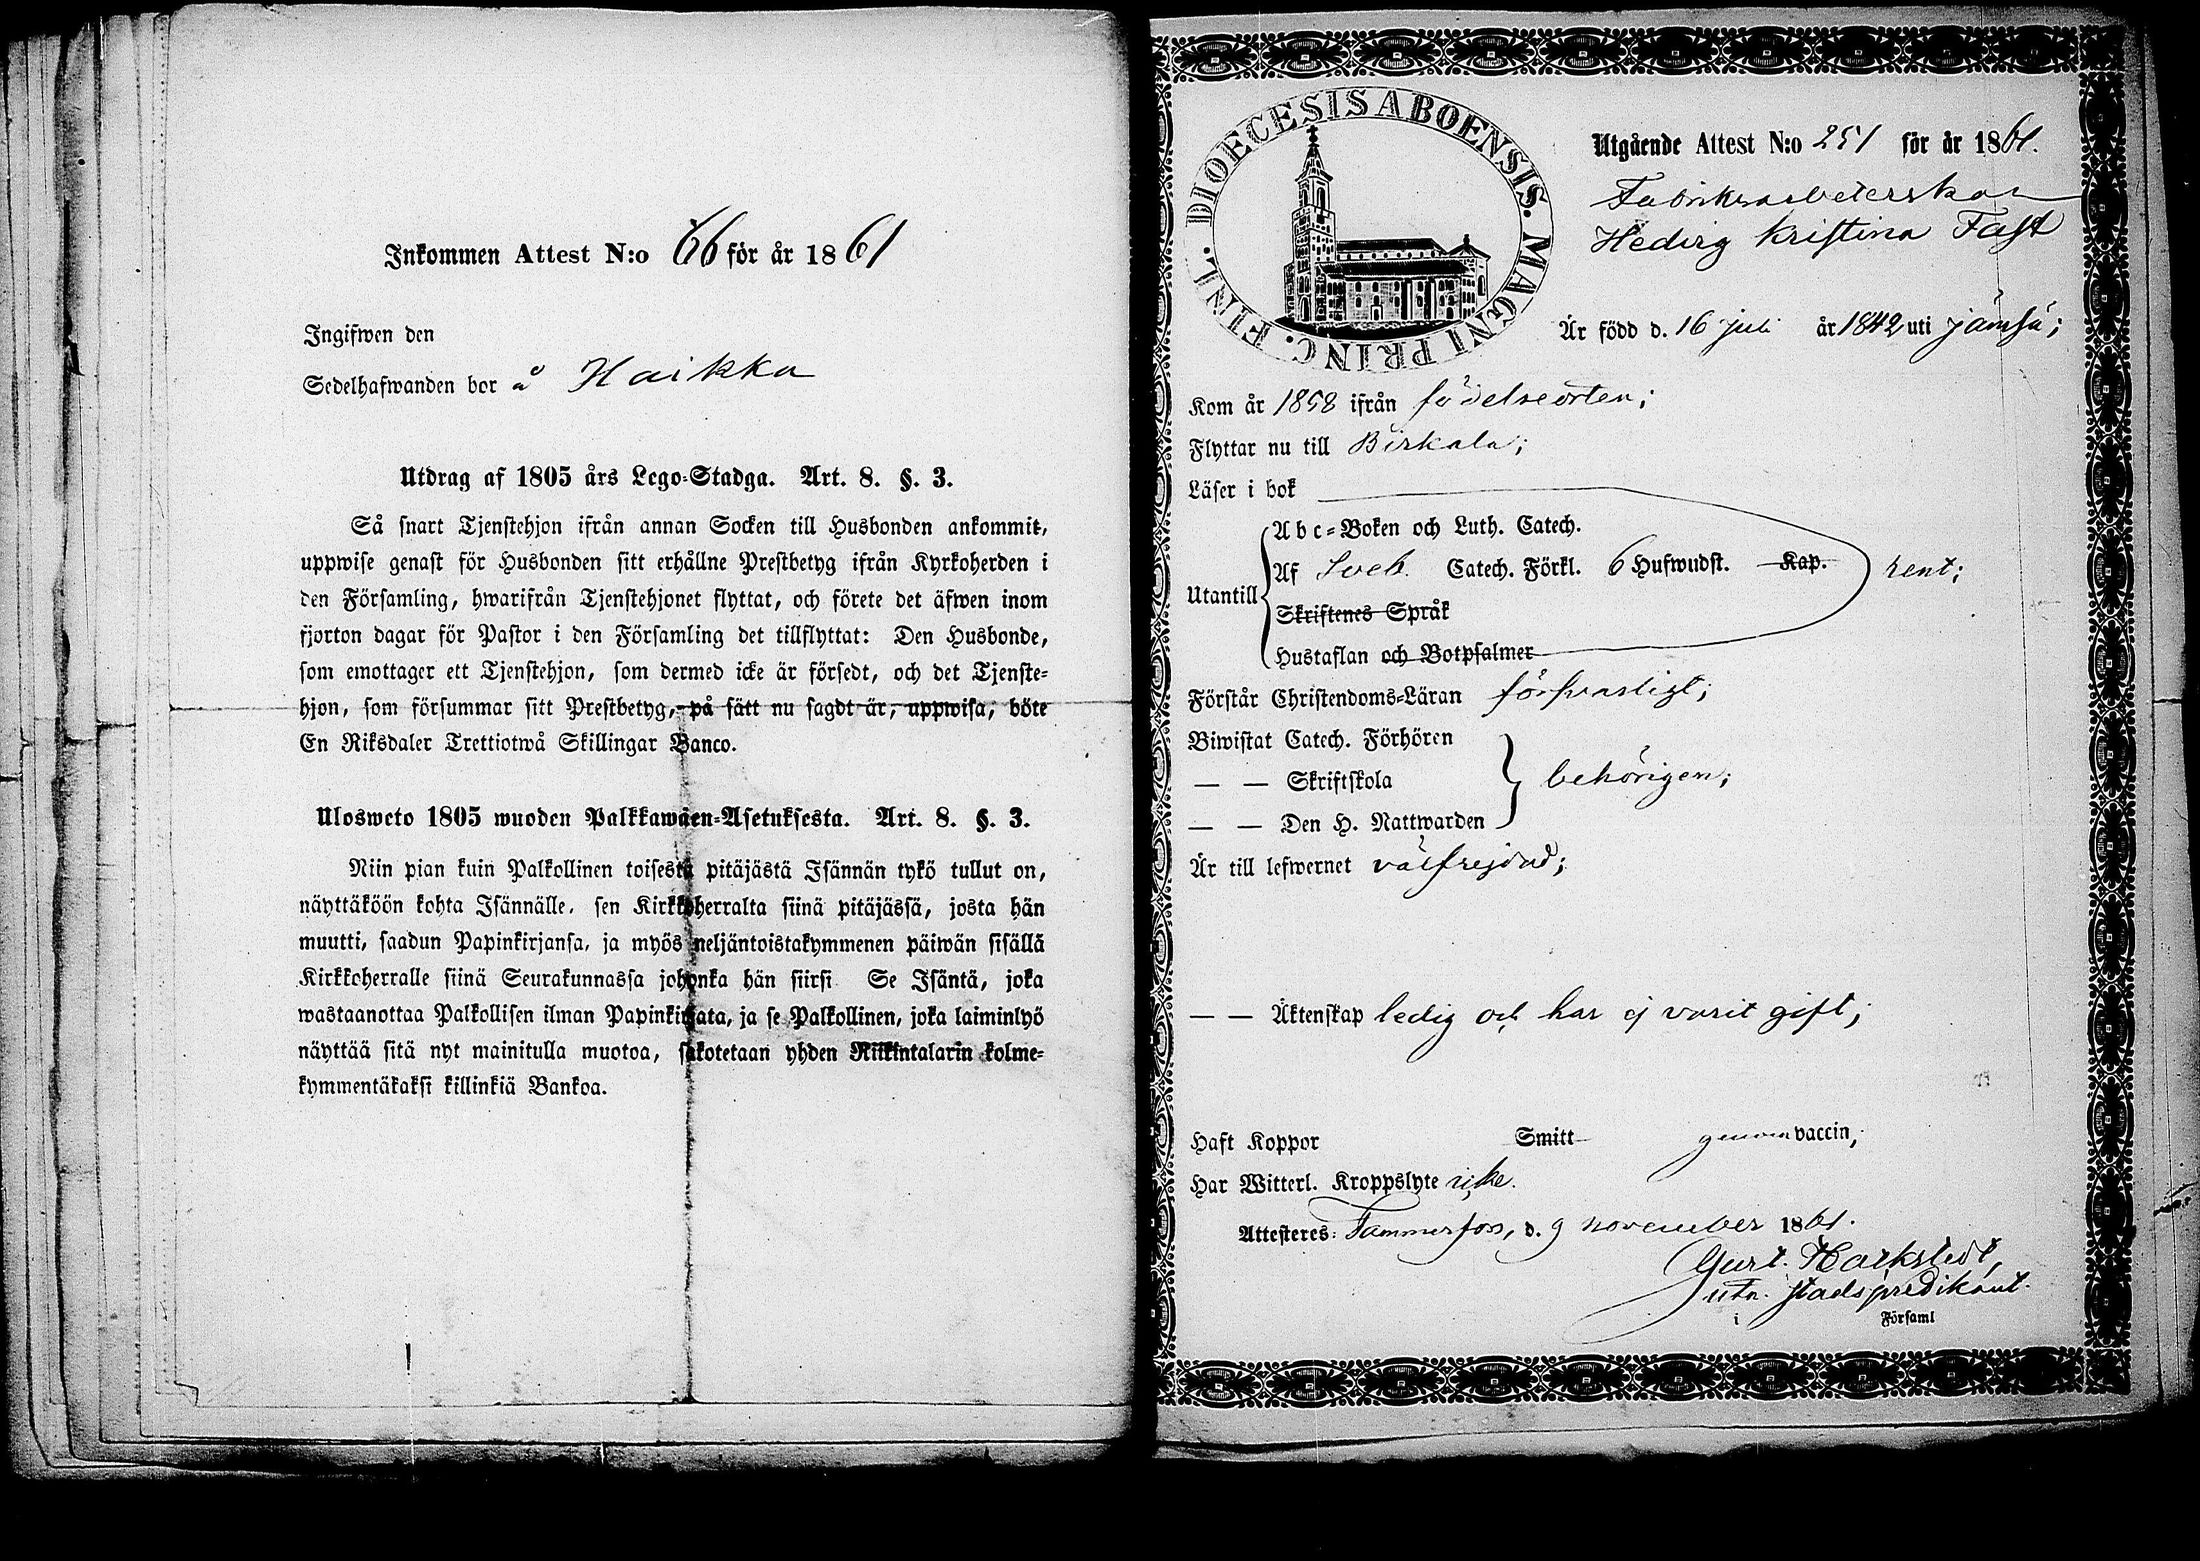 Inkommen Attest N:o 66 för år 1861
Ingifwen den
Sedelhafwanden bor å Haikka
Utdrag af 1805 års Lego-Stadga. Art. 8. §. 3.
Så snart Tjenstehjon ifrån annan Socken till Husbonden ankommit,
uppwise genast för Husbonden sitt erhållne Prestbetyg ifrån Kyrkoherden i
den Församling, hwarifrån Tjenstehjonet flyttat, och förete det äfwen inom
fjorton dagar för Pastor i den Församling det tillflyttat: Den Husbonde,
som emottager ett Tjenstehjon, som dermed icke är försedt, och det Tjenste-
hjon, som försummar sitt Prestbetyg, på sätt nu sagdt är, uppwisa, böte
En Riksdaler Trettiotwå Skillingar Banco.
Ulosweto 1805 wuoden Palkkawäen-Asetuksesta. Art. 8. §. 3.
Niin pian kuin Palkollinen toisesta pitäjästä Isännän tykö tullut on,
näyttäköön kohta Isännälle, sen Kirkkoherralta siinä pitäjässä, josta hän
muutti, saadun Papinkirjansa, ja myös neljäntoistakymmenen päiwän sisällä
Kirkkoherralle siinä Seurakunnassa johonka hän siirsi Se Isäntä, joka
wastaanottaa Palkollisen ilman Papinkirjata, ja se Palkollinen, joka laiminlyö
näyttää sitä nyt mainitulla muotoa, sakotetaan yhden Riikintalarin kolme-
kymmentäkaksi killinkiä Bankoa.
DIOECESIS ABOENSIS. MAGNI PRINC. FINL.
Utgående Attest N:o 251 för år 1861.
Fabriksarbeterskan
Hedvig Kristina Fast
Är född d. 16 juli år 1842 uti Jämsä;
Kom år 1858 ifrån födelseorten;
Flyttar nu till Birkala;
Läser i bok
Utantill
Abc-Boken och Luth. Catech.
Af Sveb. Catech. Förkl. 6 Hufwudst. Kap. rent;
Skriftenes Språk
Hustaflan och Botpsalmer
Förstår Christendoms-Läran försvarligt;
Biwistat Catech. Förhören
— — Skriftskola behörigen;
— — Den H. Nattwarden
Är till lefwernet välfrejdad;
— — Äktenskap ledig och har ej varit gift;
Haft Koppor Smitt genom vaccin;
Har Witterl. Kroppslyte icke.
Attesteres: Tammerfors, d. 9 november 1861.
Gust. Hackstedt,
stadspredikant.
i Församl